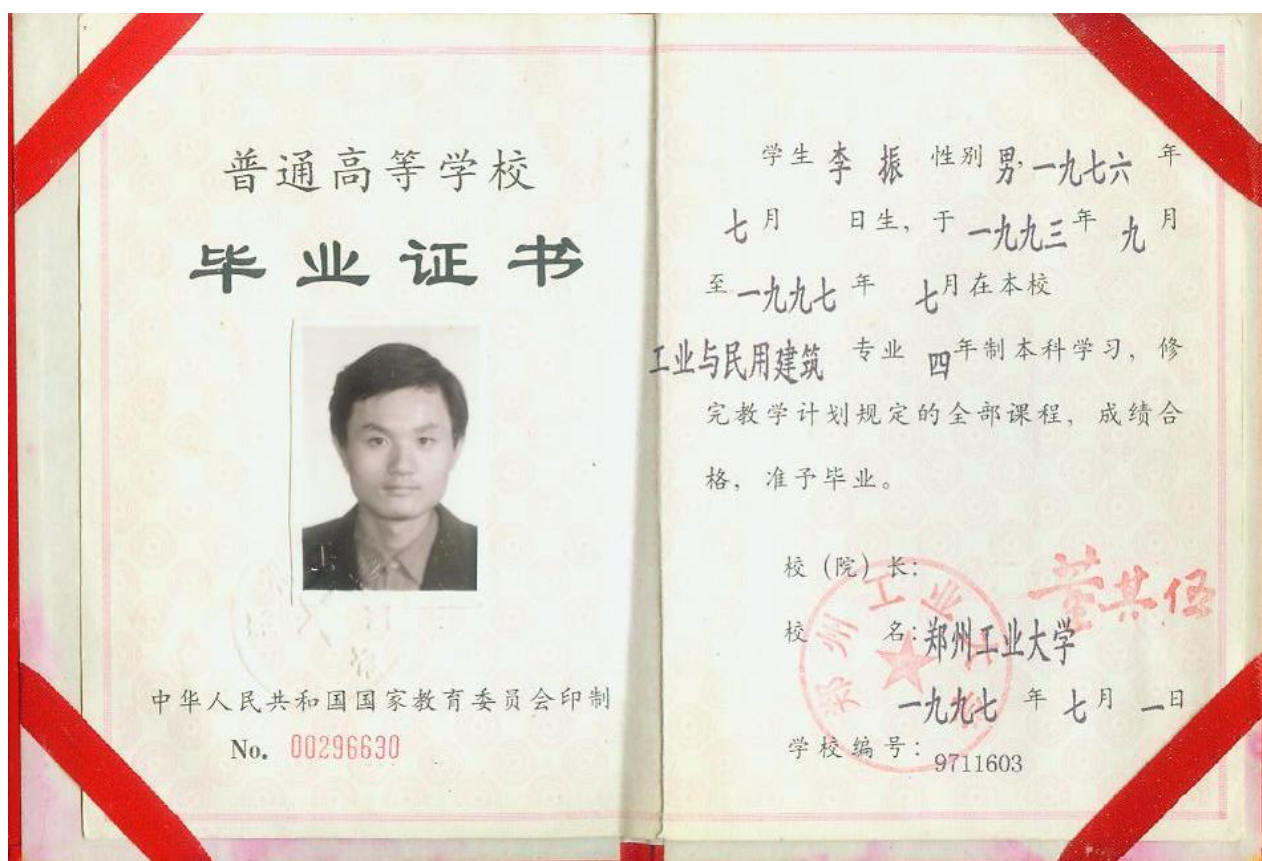 普通高等学校
毕业证书
中华人民共和国国家教育委员会印制
No. 00296630
学生 李 振 性别 男, 一九七六 年
七月 日生, 于 一九九三年 九月
至一九九七 年 七月在本校
工业与民用建筑 专业 四年制本科学习, 修
完教学计划规定的全部课程, 成绩合
格, 准予毕业。
校 (院) 长: 董其伍
校 名: 郑州工业大学
一九九七 年 七月 一日
学校编号: 9711603
郑州工业大学